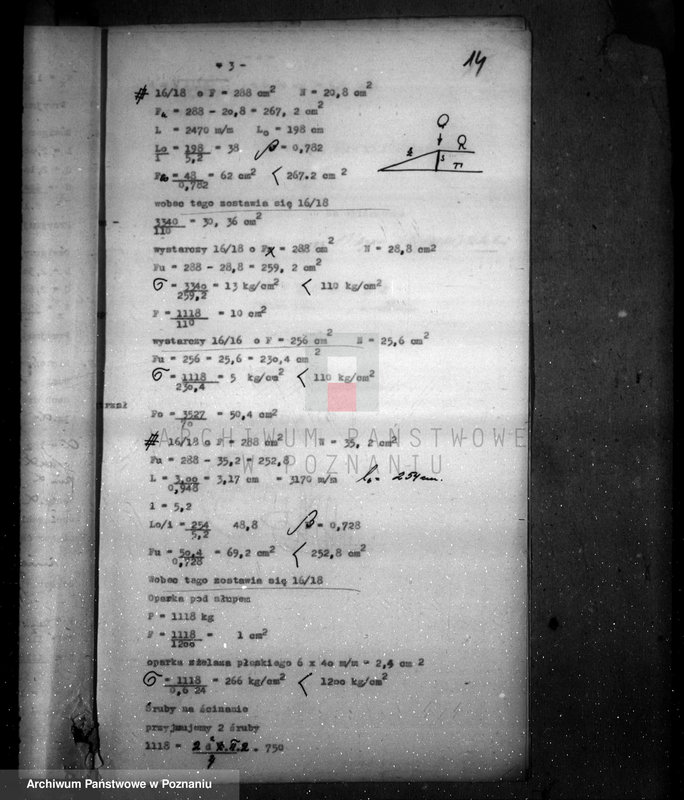 - 3 -
14
# 16/18 o F = 288 cm2 N = 20,8 cm2
F = 288 - 20,8 = 267, 2 cm2
L = 2470 m/m Lo = 198 cm
Lo/i = 198/5,2 = 38 β = 0,782
= 48/0,782 = 62 cm2 < 267.2 cm 2
Q
Q
s
wobec tego zostawia się 16/18
3340/110 = 30, 36 cm2
wystarczy 16/18 o F = 288 cm2 N = 28,8 cm2
Fu = 288 - 28,8 = 259, 2 cm2
σ = 3340/259,2 = 13 kg/cm2 < 110 kg/cm2
F = 1118/110 = 10 cm2
wystarczy 16/16 o F = 256 cm2 N = 25,6 cm2
Fu = 256 - 25,6 = 230,4 cm2
σ = 1118/230,4 = 5 kg/cm2 < 110 kg/cm2
Fo = 3527/70 = 50,4 cm2
# 16/18 o F = 288 cm2 N = 35, 2 cm2
Fu = 288 - 35,2 = 252,8
L = 3,00/0,948 = 3,17 cm = 3170 m/m lo = 254 cm.
i = 5,2
Lo/i = 254/5,2 48,8 β = 0,728
Fu = 50,4/0,728 = 69,2 cm2 < 252,8 cm2
Wobec tego zostawia się 16/18
Oparka pod słupem
P = 1118 kg
F = 1118/1200 = 1 cm2
oparka zżelaza płaskiego 6 x 40 m/m = 2,4 cm 2
σ = 1118/0,6 24 = 266 kg/cm2 < 1200 kg/cm2
Śruby na ścinanie
przyjmujemy 2 śruby
1118 = 750
ARCHIWUM PAŃSTWOWE
W POZNANIU
Archiwum Państwowe w Poznaniu